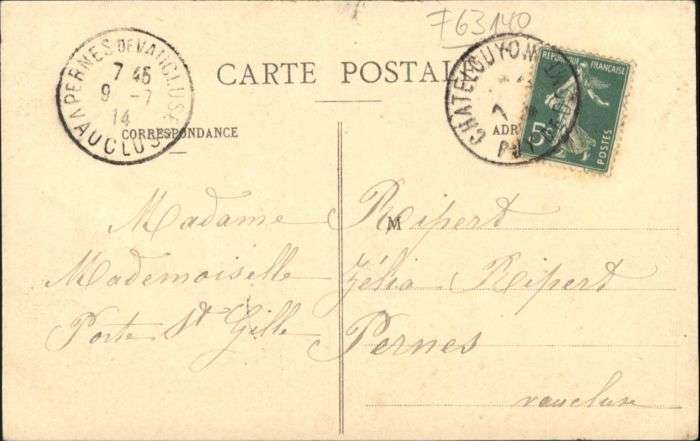 F63140
PERNES DE VAUCLUSE
7 45
9 -7
14
VAUCLUSE
CARTE POSTALE
CHATELGUYON
7
PUY
RÉPUBLIQUE FRANÇAISE
5c
POSTES
CORRESPONDANCE
ADR
M
Madame Ripert
Mademoiselle Zélia Ripert
Porte St Gille Pernes
vaucluse